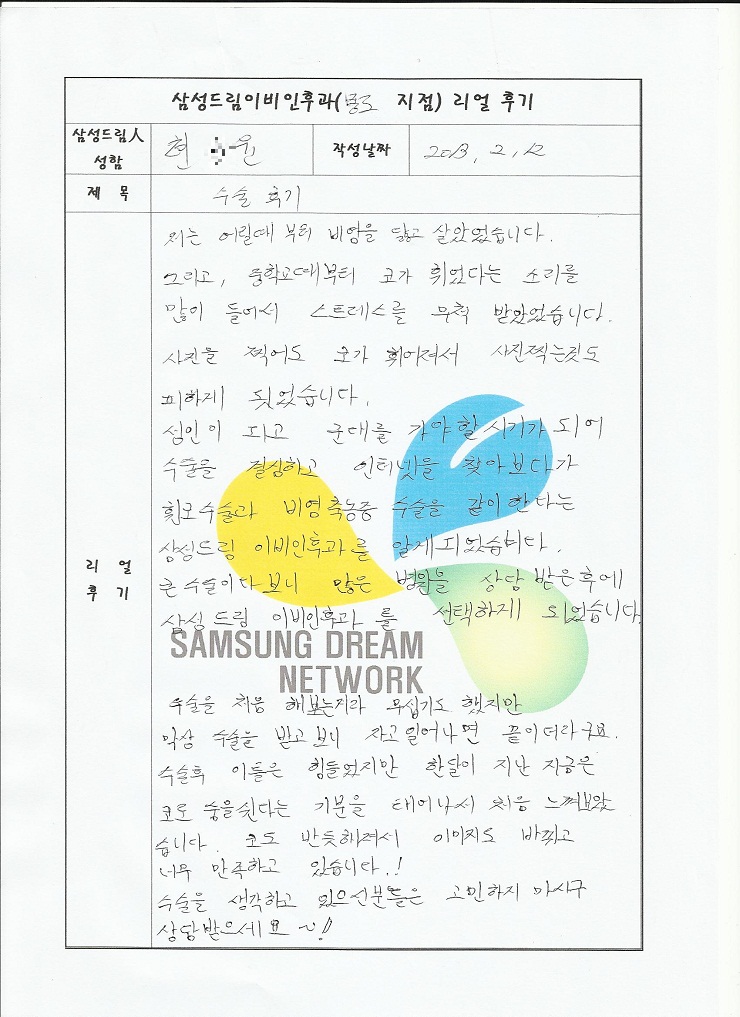 삼성드림이비인후과( 지점) 리얼 후기
삼성드림人 성함 현 원 작성날짜 2013. 2. 12
제 목 수술 후기
리 얼 후 기
저는 어릴때 부터 비염을 달고 살았었습니다.
그리고, 중학교때부터 코가 휘었다는 소리를
많이 들어서 스트레스를 무척 받았었습니다.
사진을 찍어도 코가 휘어져서 사진찍는것도
피하게 됬었습니다.
성인이 되고 군대를 가야할 시기가 되어
수술을 결심하고 인터넷을 찾아보다가
휜코수술과 비염축농증 수술을 같이한다는
삼성드림 이비인후과를 알게되었습니다.
큰수술이다보니 많은 병원을 상담받은후에
삼성드림 이비인후과를 선택하게 되었습니다
SAMSUNG DREAM
NETWORK
수술을 처음 해보는지라 무섭기도 했지만
막상 수술을 받고보니 자고일어나면 끝이더라구요.
수술후 이틀은 힘들었지만 한달이 지난 지금은
코로 숨을쉰다는 기분을 태어나서 처음 느껴보았
습니다. 코도 반듯해져서 이미지도 바뀌고
너무 만족하고 있습니다.!
수술을 생각하고 있으신분들은 고민하지 마시구
상담받으세요~!!